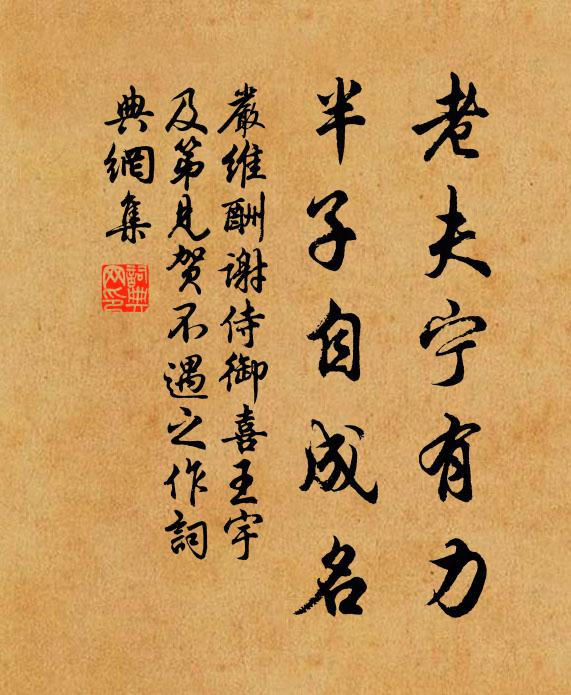 老夫宁有力
半子自成名
嚴維酬謝侍御喜王宇
及第見賀不遇之作詞
典網集
詞典网印